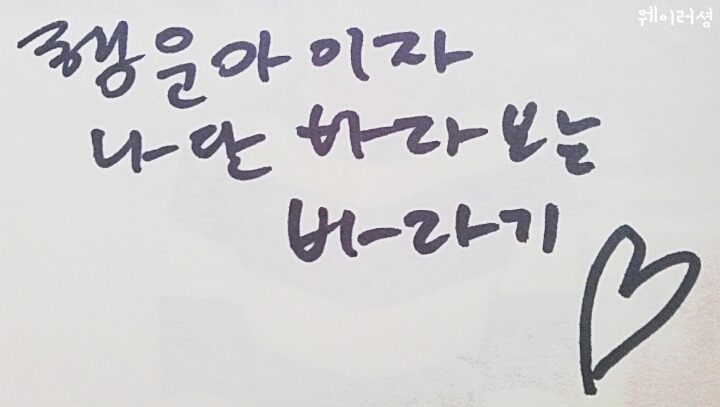 웨이러셩
행운아 이자
나만 바라 보는
바라기